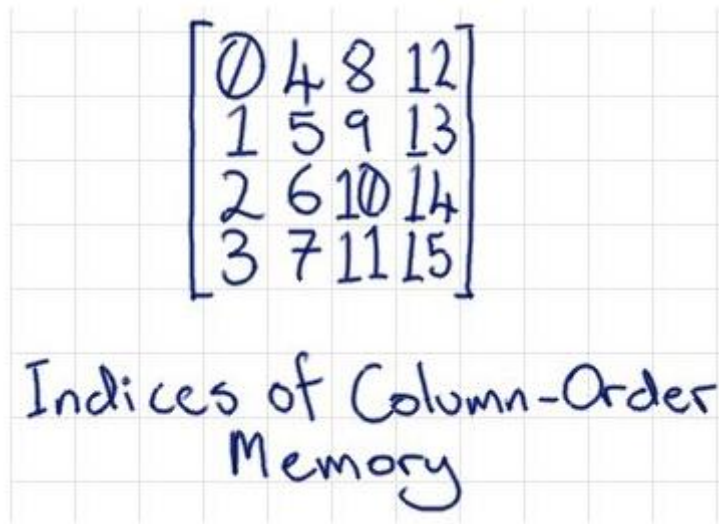 0 4 8 12
1 5 9 13
2 6 10 14
3 7 11 15
Indices of Column-Order
Memory